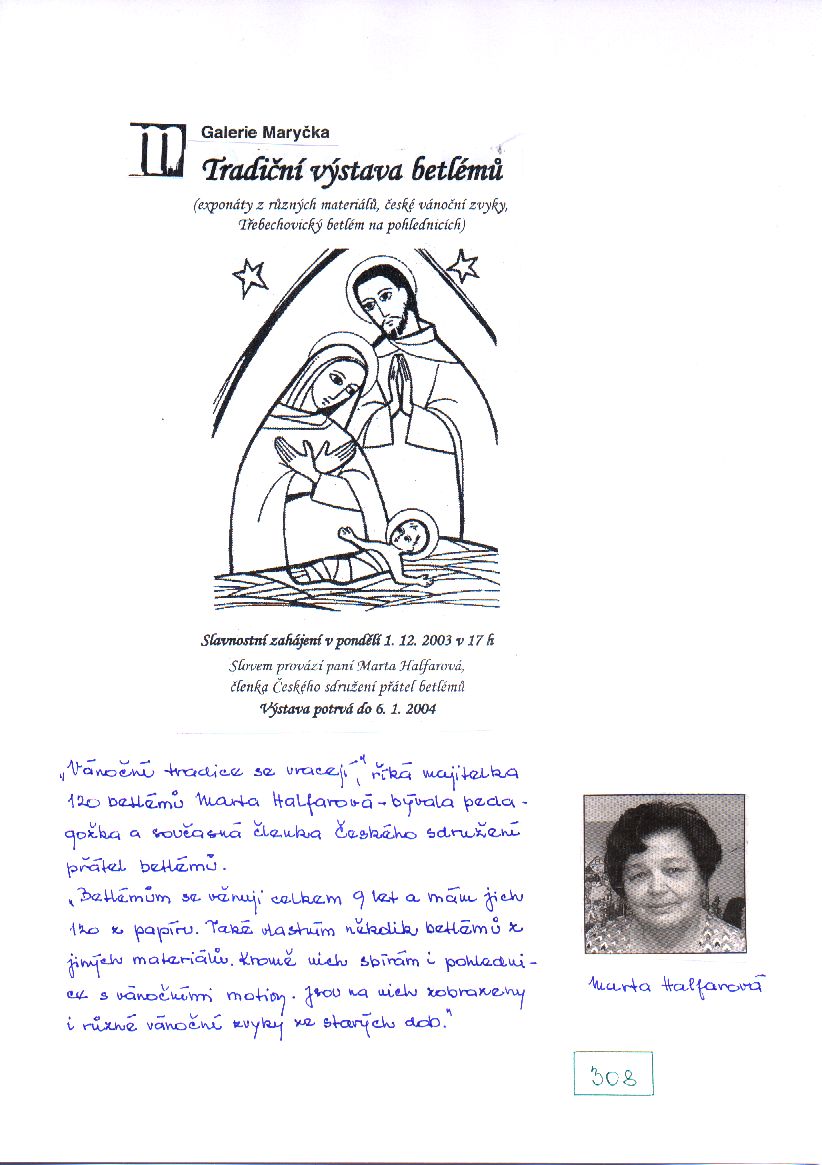 Galerie Maryčka
Tradiční výstava betlémů
(exponáty z různých materiálů, české vánoční zvyky,
Třebechovický betlém na pohlednicích)
Slavnostní zahájení v pondělí 1. 12. 2003 v 17 h
Slovem provází paní Marta Halfarová,
členka Českého sdružení přátel betlémů
Výstava potrvá do 6. 1. 2004
„Vánoční tradice se vracejí," říká majitelka
120 betlémů Marta Halfarová - bývala peda-
gožka a současná členka Českého sdružení
přátel betlémů.
„Betlémům se věnuji celkem 9 let a mám jich
120 z papíru. Také vlastním několik betlémů z
jiných materiálů. Kromě nich sbírám i pohledni-
ce s vánočními motivy. Jsou na nich zobrazeny
i různé vánoční zvyky ze starých dob."
Marta Halfarová
308